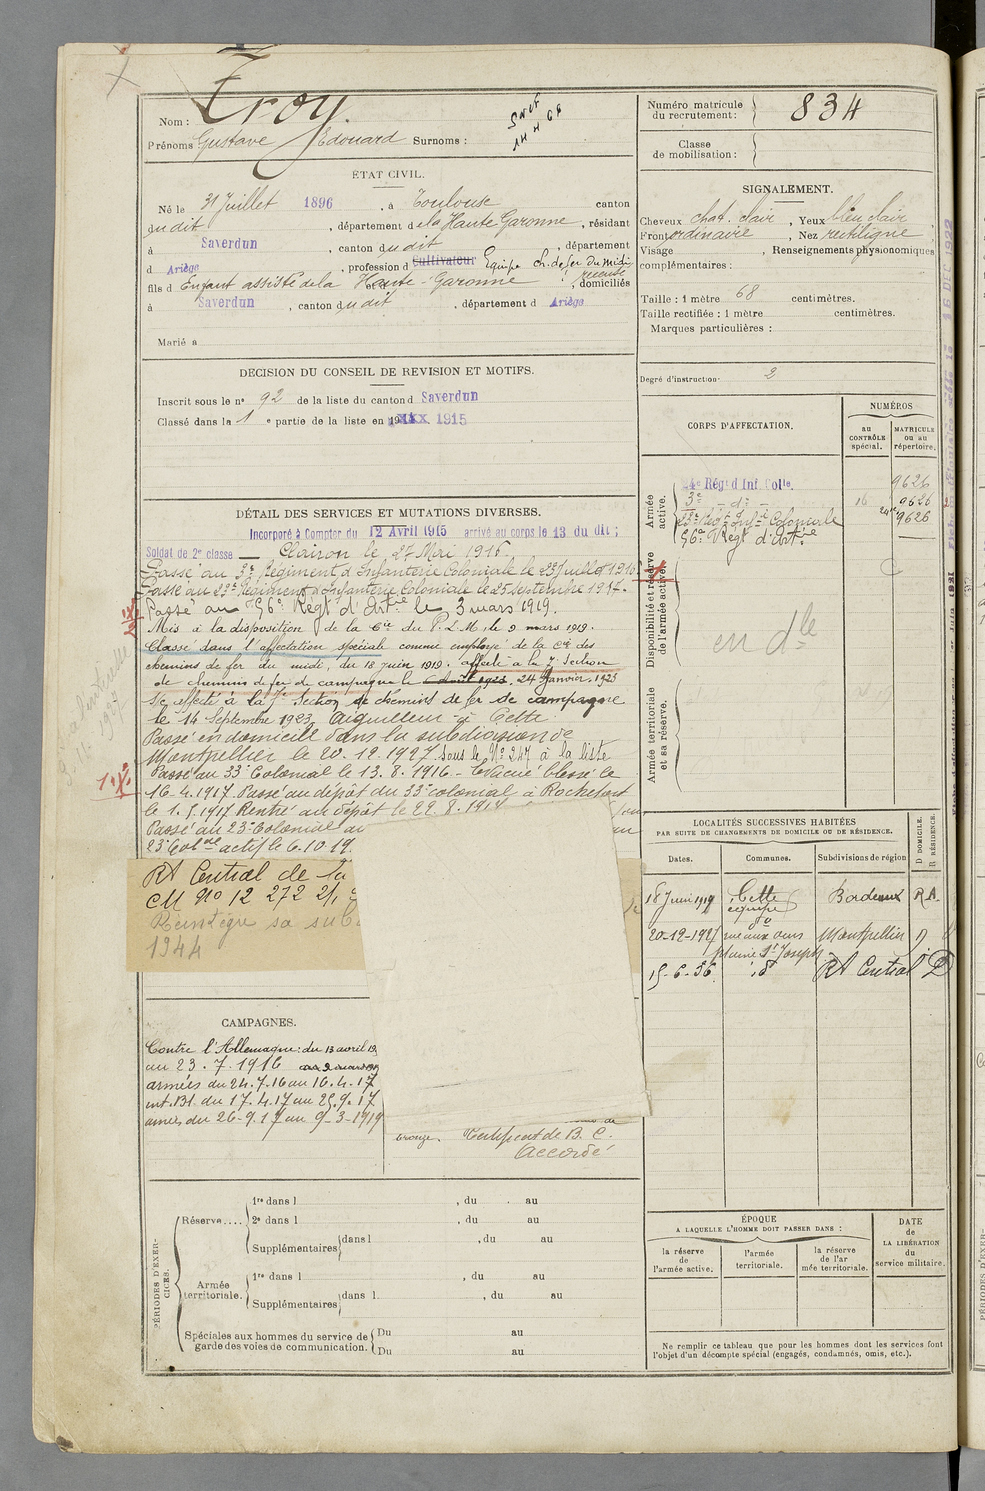 Nom : Troy.
Prénoms Gustave Edouard Surnoms :
Numéro matricule du recrutement : 834
Classe de mobilisation :
ÉTAT CIVIL.
Né le 31 Juillet 1896, à Toulouse canton
dudit, département de la Haute Garonne, résidant
à Saverdun, canton dudit, département
d Ariège, profession d Cultivateur Equipe ch. de fer du Midi
fils d Enfant assisté de la Haute-Garonne, domiciliés
à Saverdun, canton dudit, département d Ariège
Marié à
SIGNALEMENT.
Cheveux chat. clair, Yeux bleu clair
Front ordinaire, Nez rectiligne
Visage , Renseignements physionomiques
complémentaires :
Taille : 1 mètre 68 centimètres.
Taille rectifiée : 1 mètre centimètres.
Marques particulières :
Degré d'instruction 2
DÉCISION DU CONSEIL DE REVISION ET MOTIFS.
Inscrit sous le n° 92 de la liste du canton d Saverdun
Classé dans la 1e partie de la liste en 1915
CORPS D'AFFECTATION.
NUMÉROS
au CONTRÔLE spécial.
MATRICULE ou au répertoire.
Armée active.
24e Régt d Inf. Colle. 9626
3e - d° - 16 9626
23e Régt Infie Coloniale 9626
56e Régt d'Artie
Disponibilité et réserve de l'armée active.
en dle
Armée territoriale et sa réserve.
DÉTAIL DES SERVICES ET MUTATIONS DIVERSES.
Incorporé à Compter du 12 Avril 1915 arrivé au corps le 13 du dit ;
Soldat de 2e classe — Clairon le 27 Mai 1916.
Passé au 3e Régiment d'Infanterie Coloniale le 23 Juillet 1916.
Passé au 23e Régiment d'Infanterie Coloniale le 25 septembre 1917.
Passé au 56e Régt d'Artie le 3 mars 1919.
Mis à la disposition de la Cie du P.L.M. le 9 mars 1919.
Classé dans l'affectation spéciale comme employé de la Cie des
chemins de fer du midi, du 18 juin 1919. affecté à la 7e Section
de chemins de fer de campagne le 24 Janvier 1923
affecté à la 7e Section de chemins de fer de campagne
le 14 Septembre 1923. Aiguilleur à Cette.
Passé en domicile dans la subdivision de
Montpellier le 20.12.1927. Sous le N° 247 à la liste
Passé au 33e Colonial le 13.8.1916 - Evacué blessé le
16-4.1917. Passé au dépôt du 33e colonial à Rochefort
le 1.5.1917 Rentré au dépôt le 22.8.1917
Passé au 23e Colonial au
23e Colal actif le 6.10.19.
RA Central de la
CM N° 12 272 21,
Réintègre sa sub
1944
LOCALITÉS SUCCESSIVES HABITÉES
PAR SUITE DE CHANGEMENTS DE DOMICILE OU DE RÉSIDENCE.
Dates. Communes. Subdivisions de région D DOMICILE. R RÉSIDENCE.
18 Juin 1919 Cette équipe Bordeaux R.A.
20-12-1927 d° rue aux ours plaine St Joseph Montpellier D.
15-6-36 id RA Central D
CAMPAGNES.
Contre l'Allemagne : du 13 avril 19
au 23.7.1916
armées du 24.7.16 au 16.4.17
int. Bl. du 17.4.17 au 25.9.17
armées du 26-9.17 au 9-3-1919
bronze. Certificat de B. C.
Accordé
PÉRIODES D'EXERCICES.
Réserve....
1re dans l , du au
2e dans l , du au
Supplémentaires dans l , du au
Armée territoriale.
1re dans l , du au
Supplémentaires dans l , du au
Spéciales aux hommes du service de garde des voies de communication.
Du au
Du au
ÉPOQUE
A LAQUELLE L'HOMME DOIT PASSER DANS :
la réserve de l'armée active.
l'armée territoriale.
la réserve de l'armée territoriale.
DATE de LA LIBÉRATION du service militaire.
Ne remplir ce tableau que pour les hommes dont les services font
l'objet d'un décompte spécial (engagés, condamnés, omis, etc.).